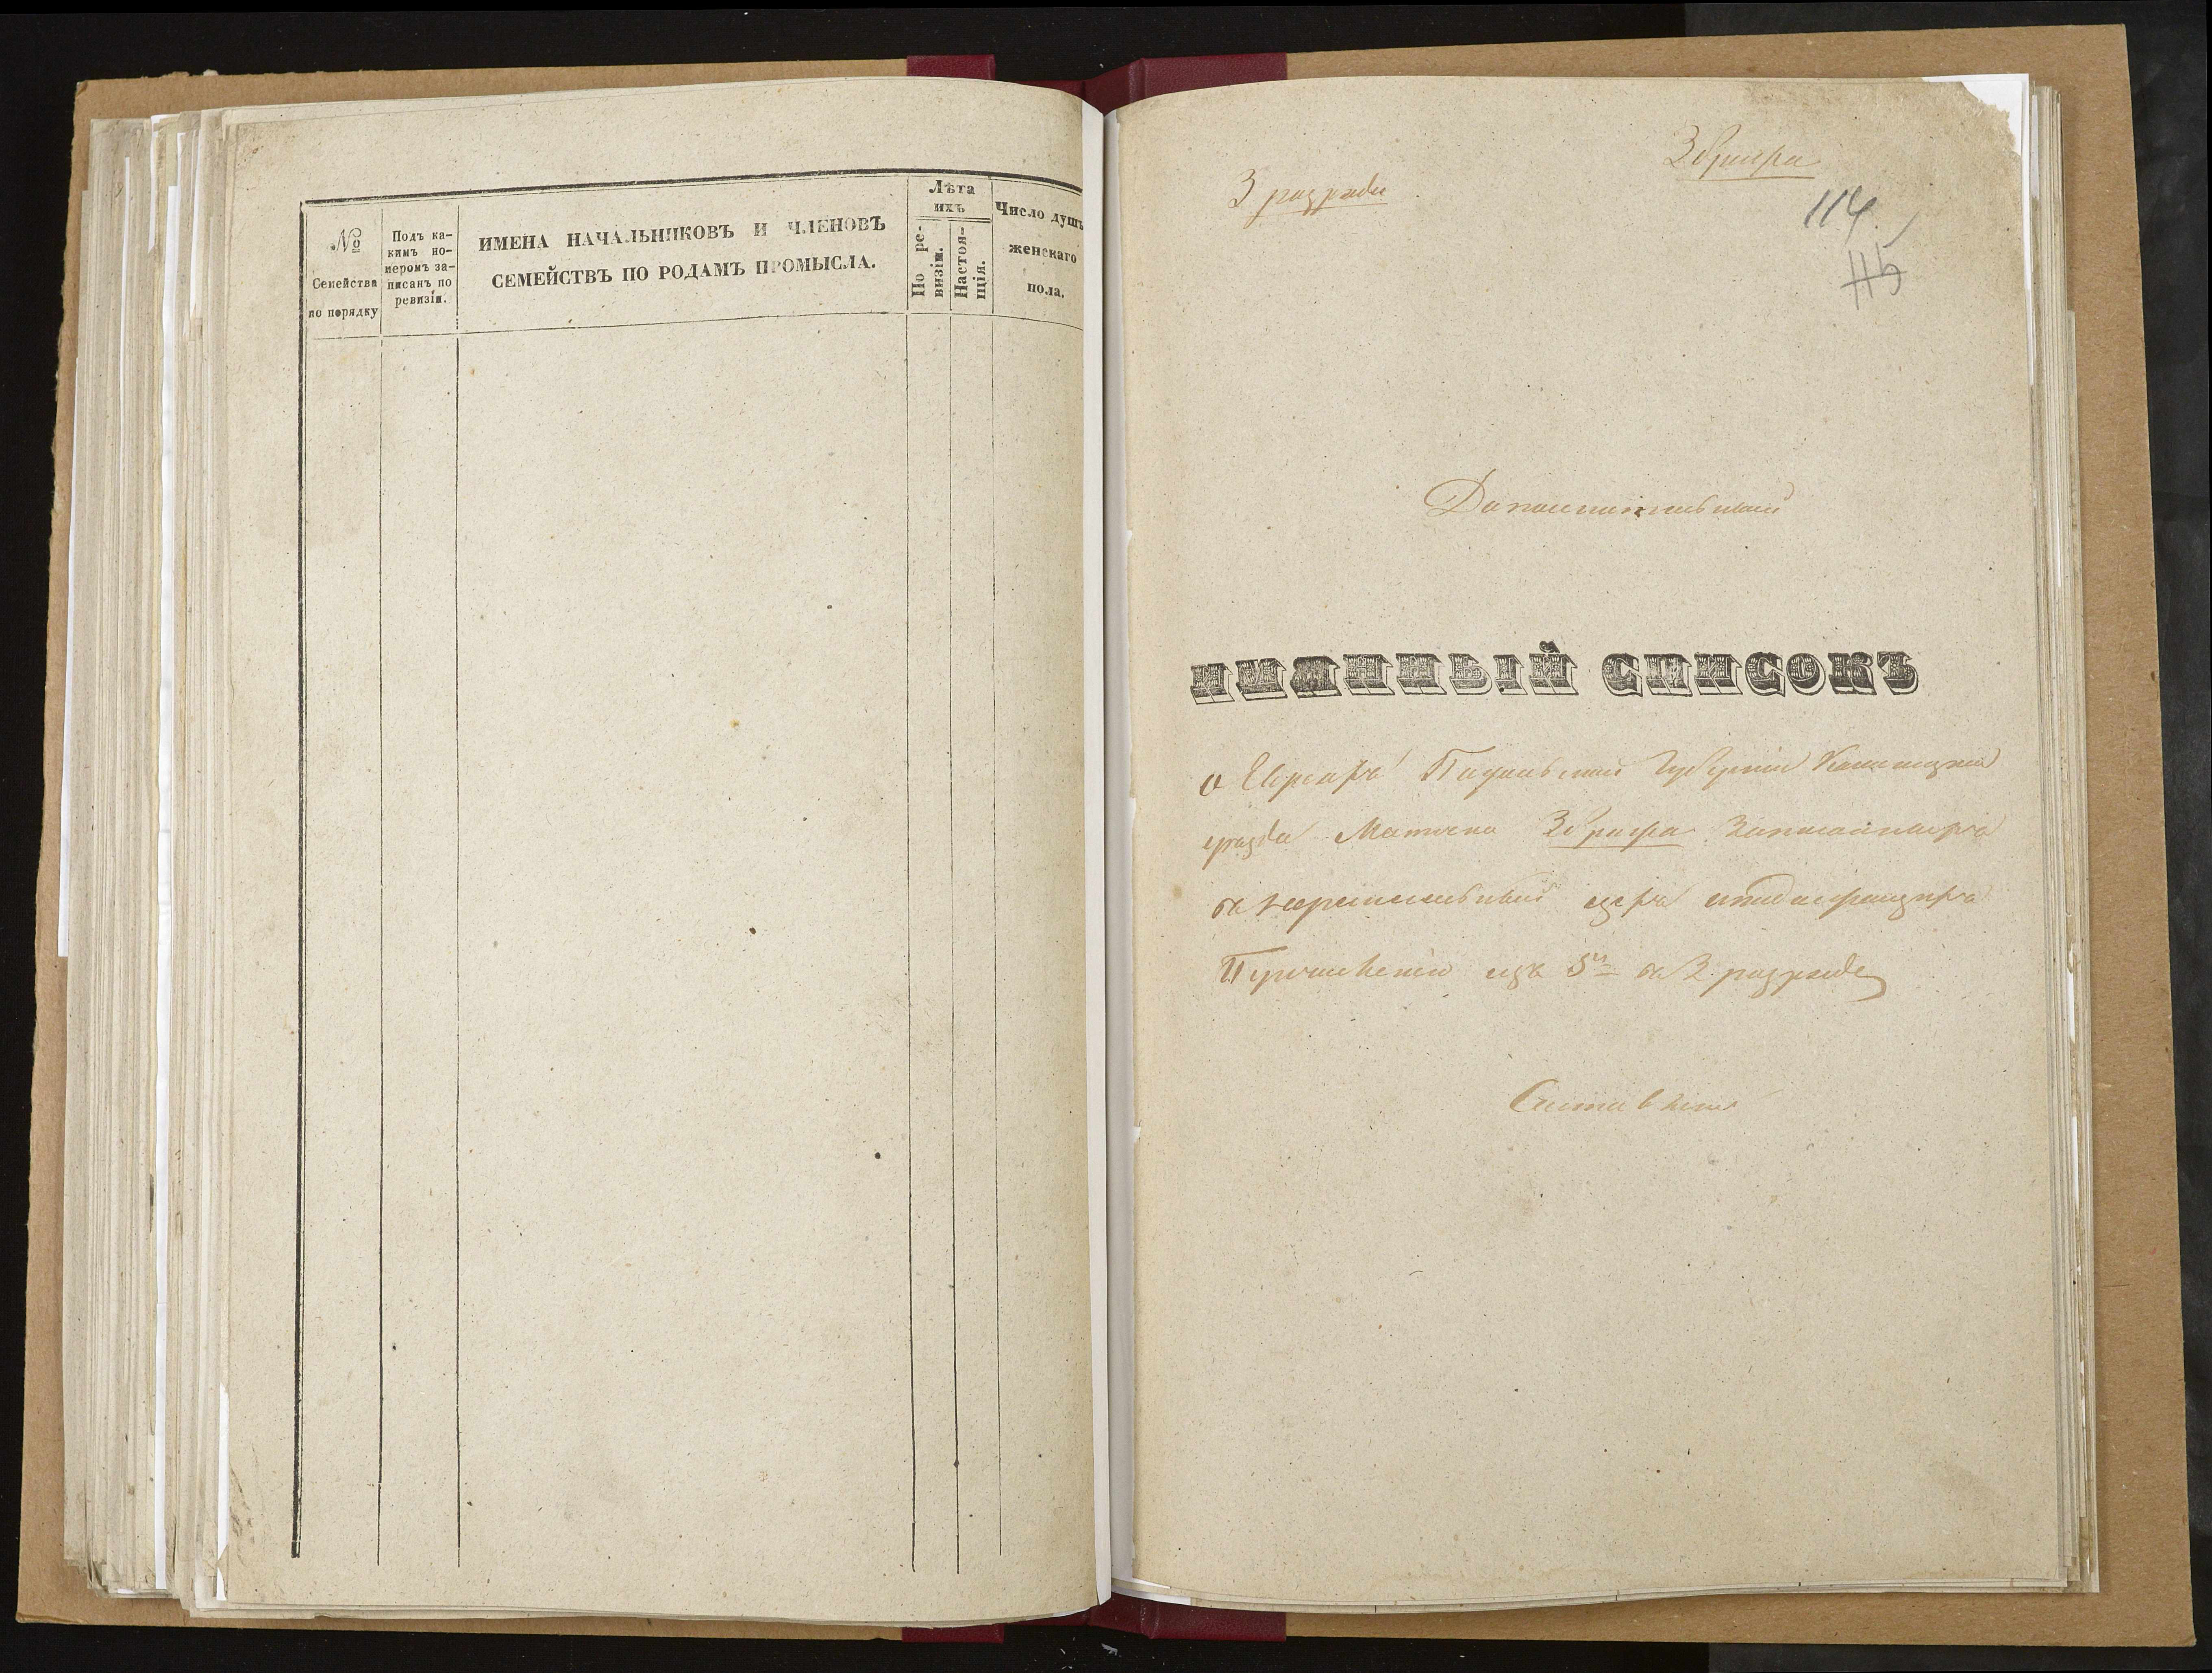 №
Семейства
по порядку
Подъ ка-
кимъ но-
меромъ за-
писанъ по
ревизіи.
ИМЕНА НАЧАЛЬНИКОВЪ И ЧЛЕНОВЪ
СЕМЕЙСТВЪ ПО РОДАМЪ ПРОМЫСЛА.
Лѣта
ихъ
По ре-
визіи.
Настоя-
щія.
Число душъ
женскаго
пола.
3 разряда
Збрижа
114
115
Дополнительный
ИМЯННЫЙ СПИСОКЪ
о Евреяхъ Подольской Губерніи Каменецкаго
уѣзда Мѣстечка Збрижа
изъ 5го въ 3 разрядъ
Составленъ